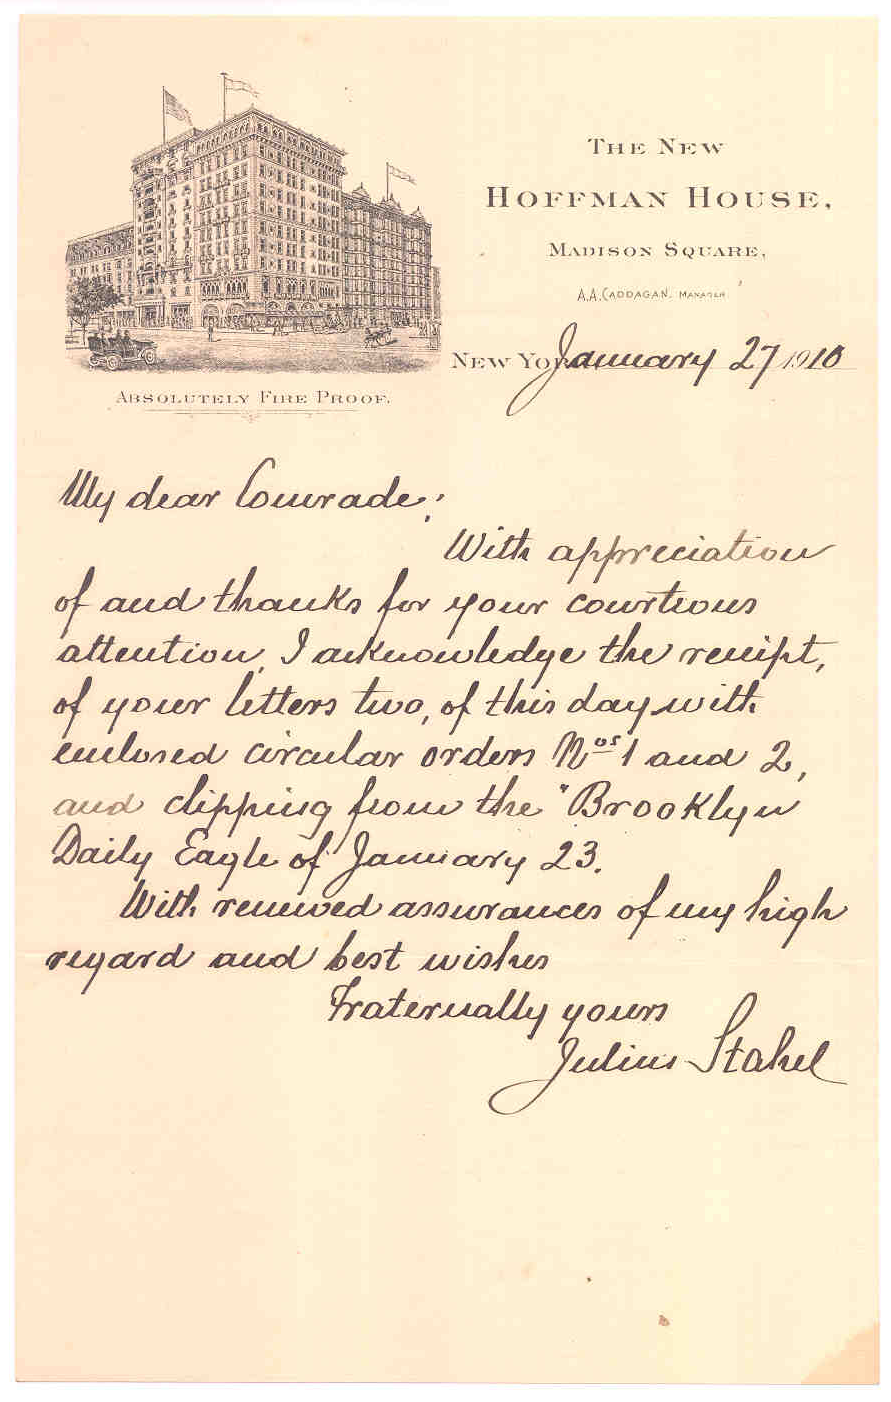 THE NEW
HOFFMAN HOUSE,
MADISON SQUARE,
A.A. CADDAGAN. MANAGER.
NEW YORK January 27 1910
ABSOLUTELY FIRE PROOF.
My dear Comrade:
With appreciation
of and thanks for your courtious
attention, I acknowledge the receipt,
of your letters two, of this day with
enclosed circular orders Nos 1 and 2,
and clipping from the "Brooklyn
Daily Eagle of January 23.
With renewed assurances of my high
regard and best wishes
Fraternally yours
Julius Stahel